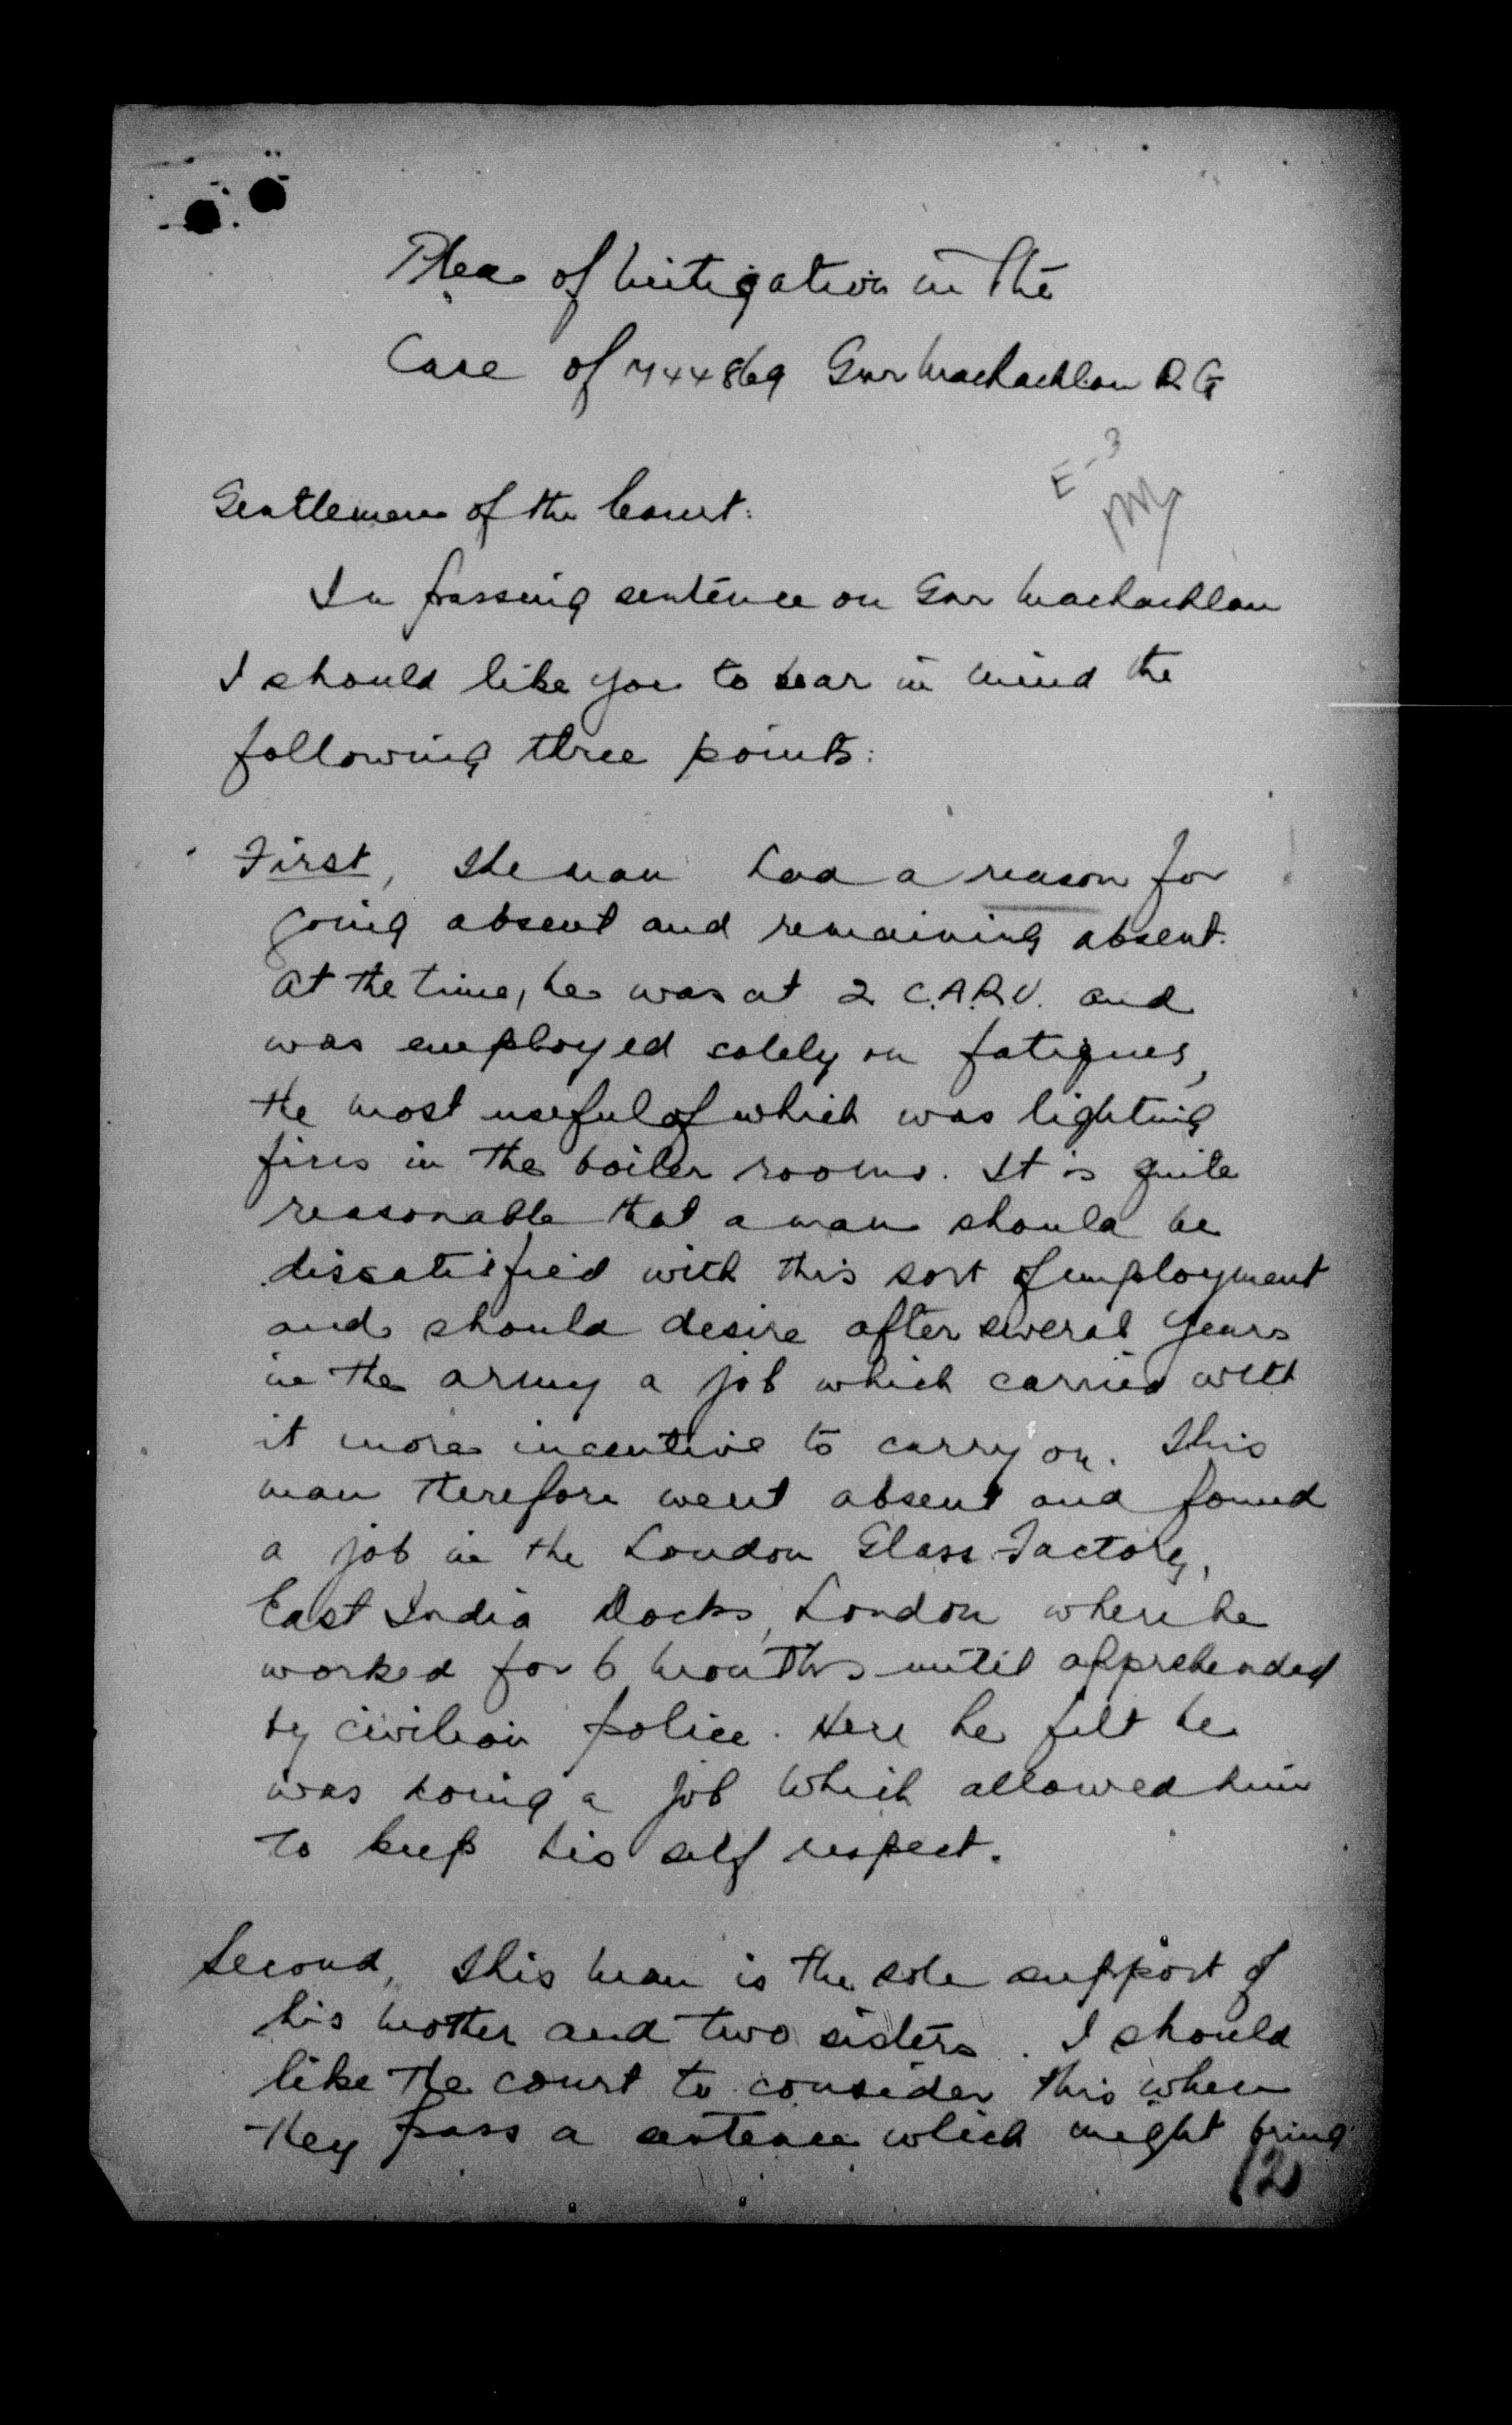 Plea of Mitigation in The
Case of M44869 Gnr MacLachlan R G
E-3
Gentlemen of the Court:
In passing sentence on Gnr MacLachlan
I should like you to bear in mind the
following three points:
First, The man had a reason for
going absent and remaining absent.
At the time, he was at 2 C.A.R.U. and
was employed solely on fatigues,
the most useful of which was lighting
fires in the boiler rooms. It is quite
reasonable that a man should be
dissatisfied with this sort of employment
and should desire after several years
in the army a job which carried with
it more incentive to carry on. This
man therefore went absent and found
a job in the London Glass Factory,
East India Docks, London where he
worked for 6 months until apprehended
by civilian police. Here he felt he
was doing a job which allowed him
to keep his self respect.
Second, This man is the sole support of
his mother and two sisters. I should
like the court to consider this when
they pass a sentence which might bring
12